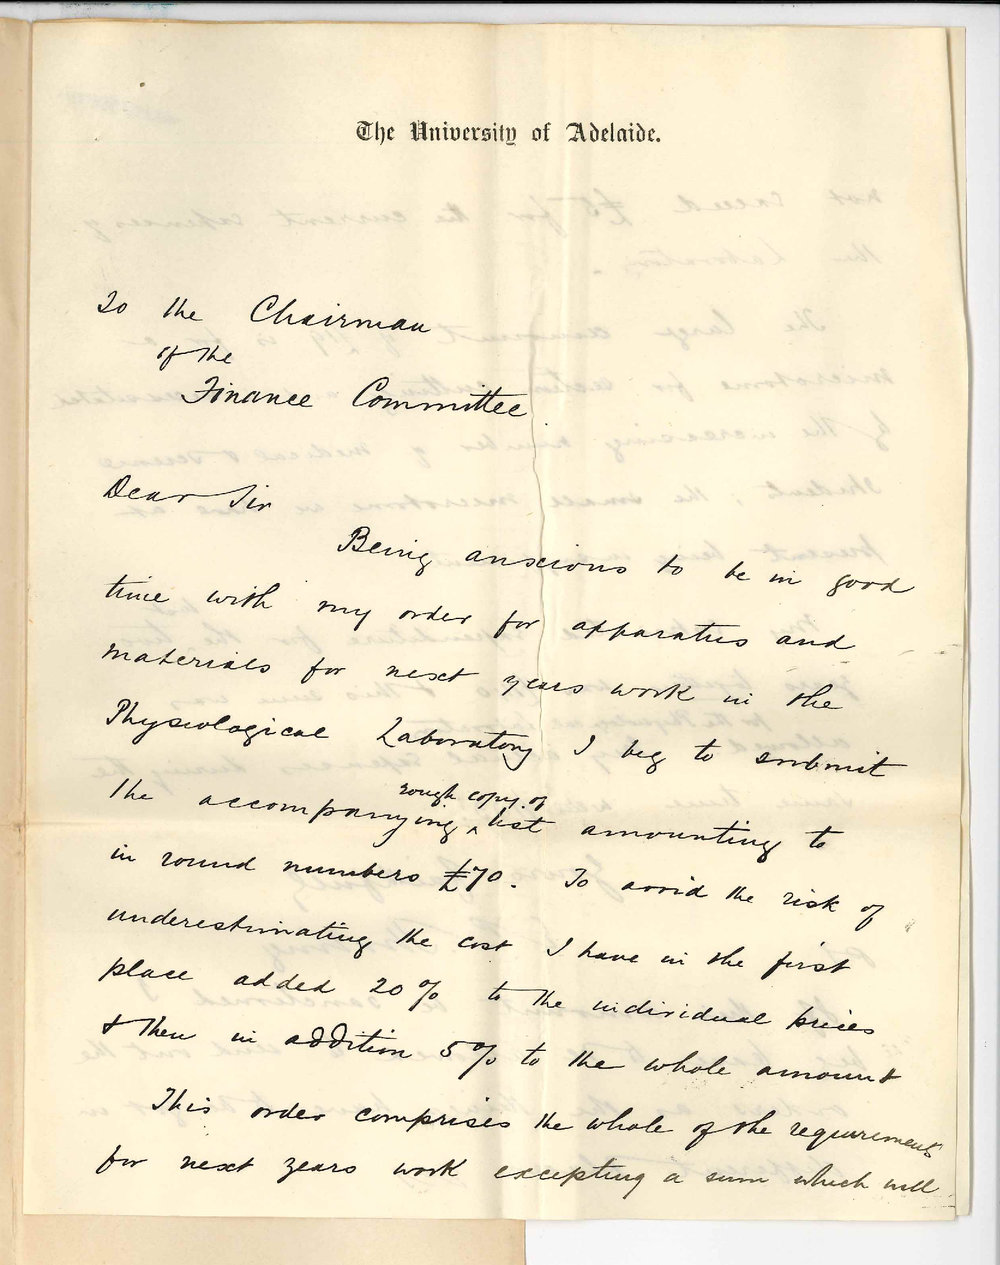 The University of Adelaide.
To the Chairman
of the
Finance Committee
Dear Sir
Being anxious to be in good
time with my order for apparatus and
materials for next years work in the
Physiological Laboratory I beg to submit
rough copy of
the accompanying ^ list amounting to
in round numbers £70. To avoid the risk of
underestimating the cost I have in the first
place added 20% to the individual prices
& then in addition 5% to the whole amount
This order comprises the whole of the requirements
for next years work excepting a sum which will